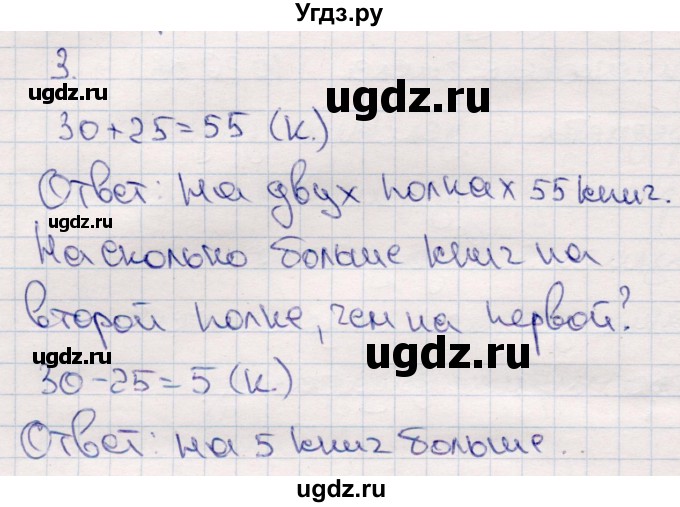 Угдз.ру
3.
ugdz.ru
ugdz.ru
30+25=55 (к.)
Ответ: на двух полках 55 книг.
ugdz.ru
На сколько больше книг на
второй полке, чем на первой?
ugdz.ru
ugdz.ru
30-25=5 (к.)
Ответ: на 5 книг больше..
ugdz.ru